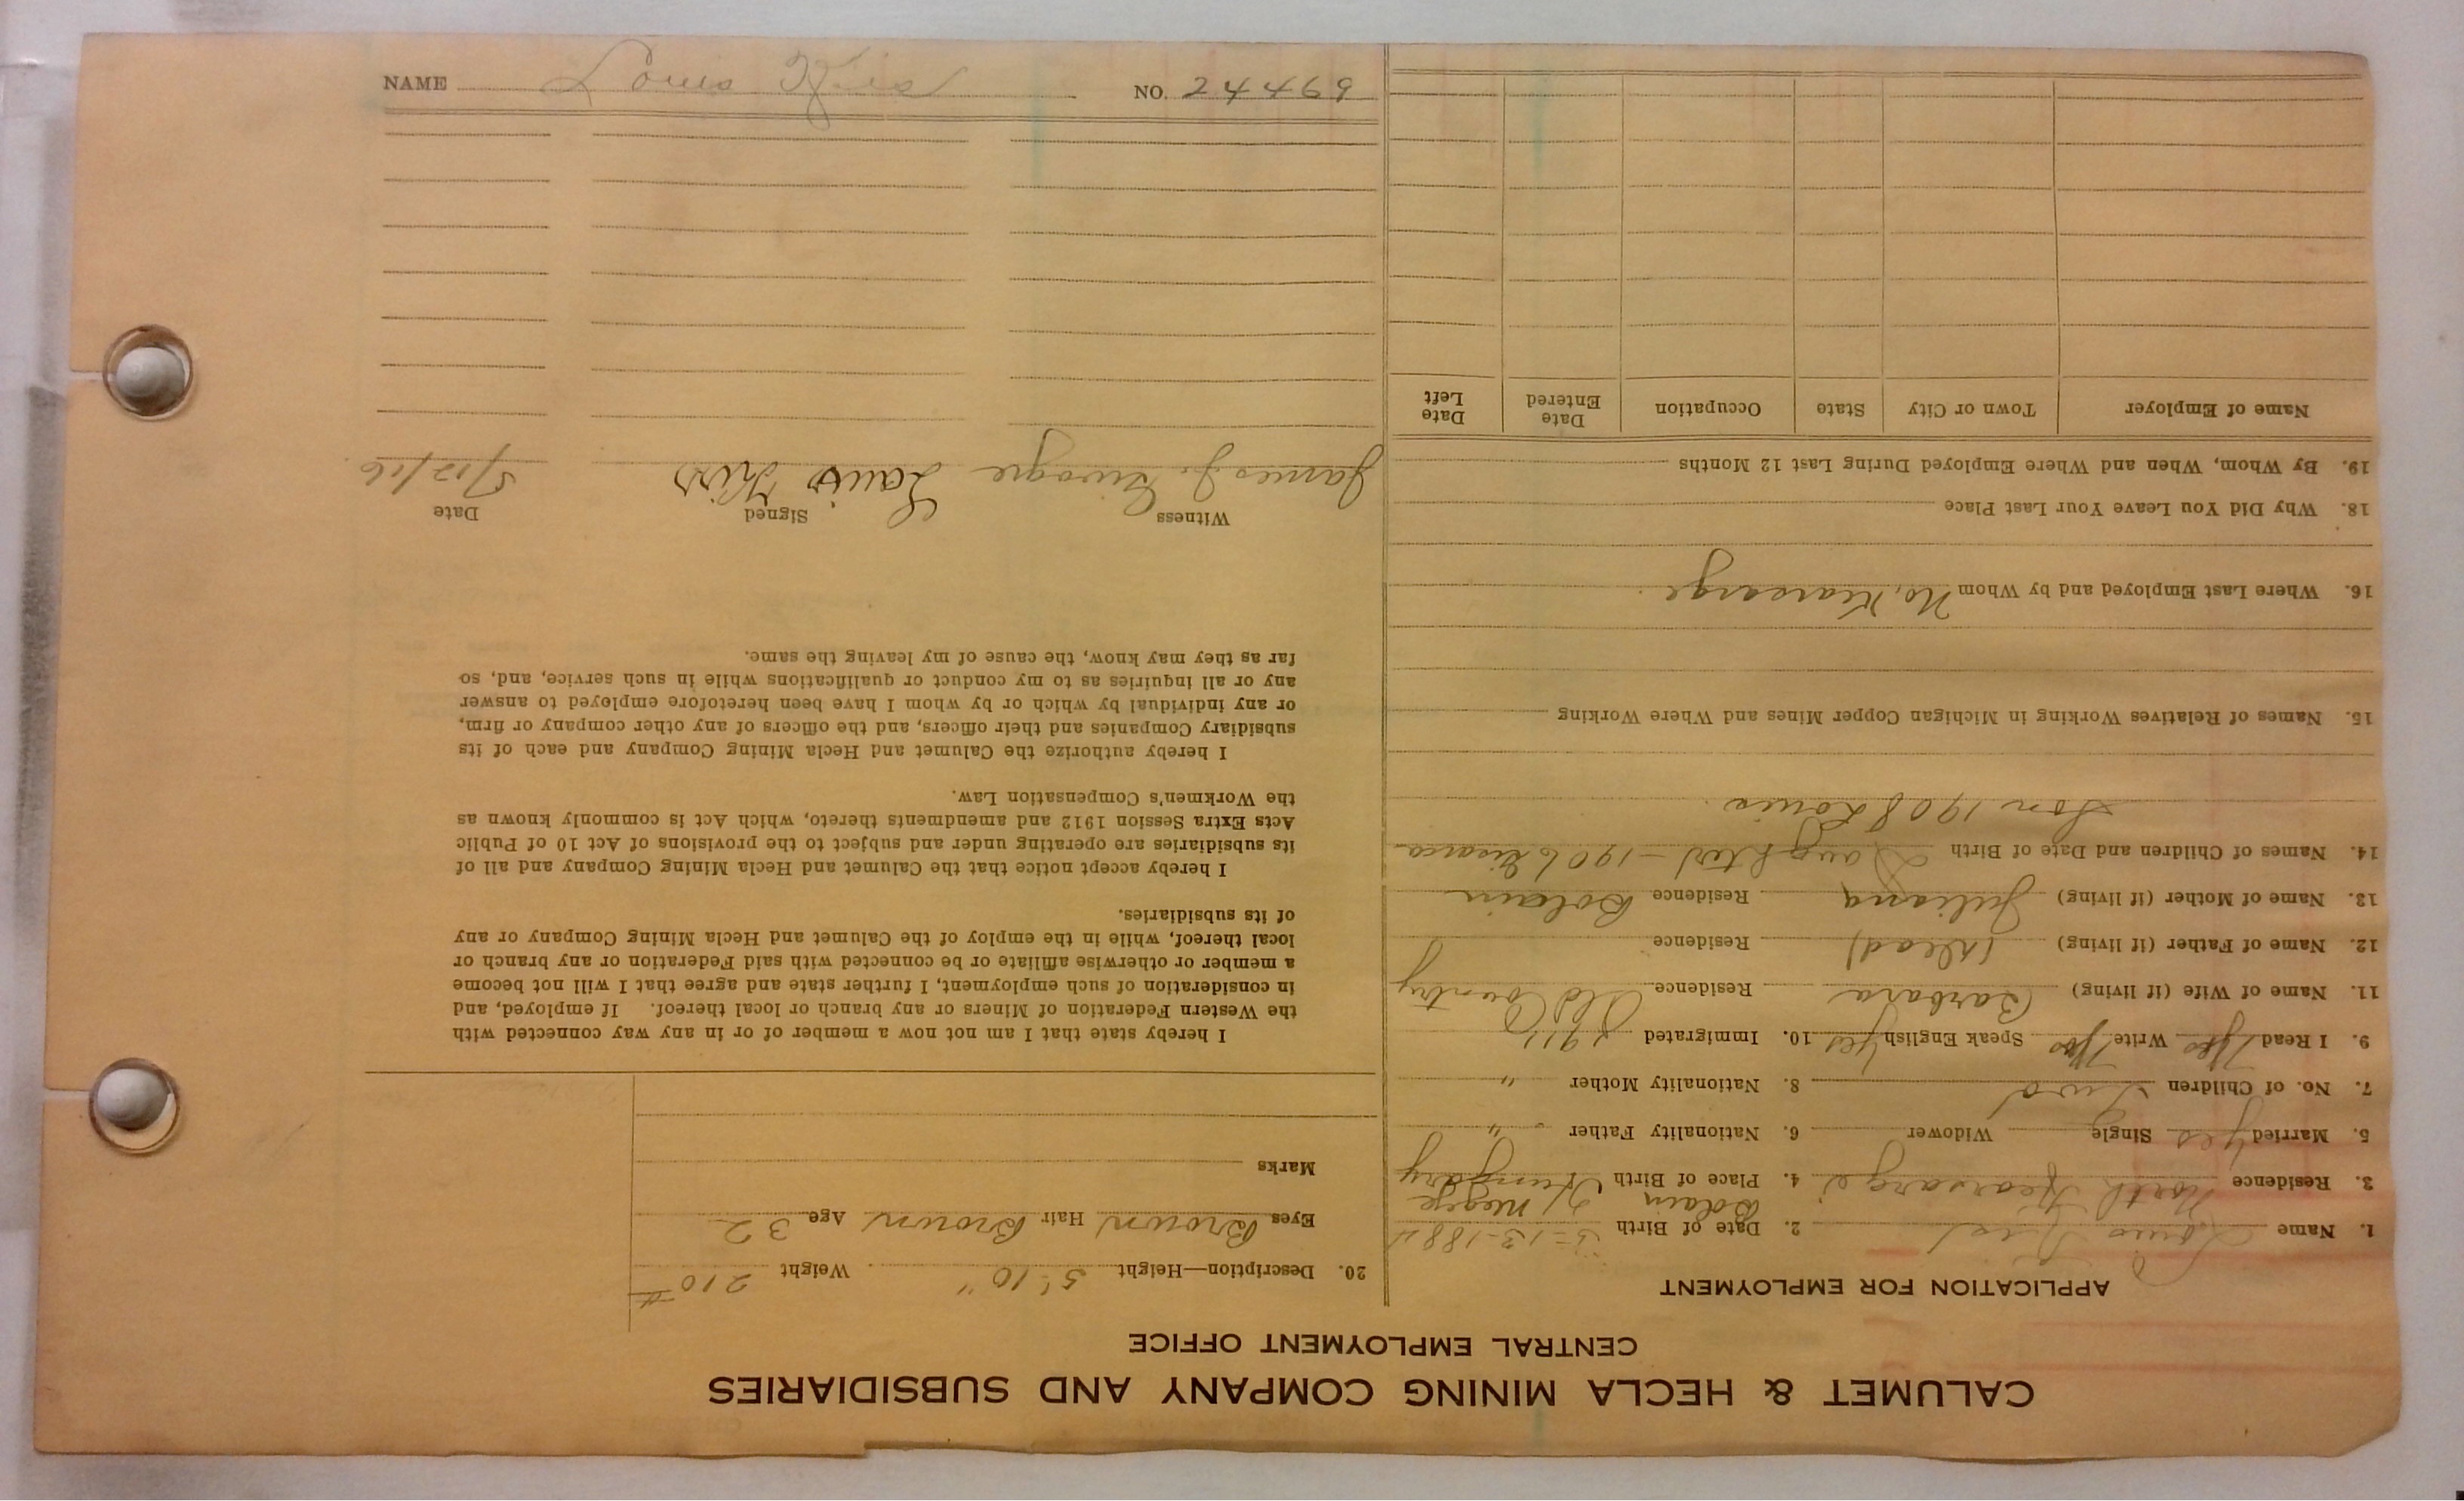 CALUMET & HECLA MINING COMPANY AND SUBSIDIARIES
CENTRAL EMPLOYMENT OFFICE
APPLICATION FOR EMPLOYMENT
1. Name Louis Kiss 2. Date of Birth 5-13-1884
3. Residence North Kearsarge 4. Place of Birth Bolain Megye Hungary
5. Married yes Single Widower 6. Nationality Father "
7. No. of Children Two 8. Nationality Mother "
9. I Read Yes Write Yes Speak English Yes 10. Immigrated 1911
11. Name of Wife (if living) Barbara Residence Old Country
12. Name of Father (if living) (Dead) Residence
13. Name of Mother (if living) Juliana Residence Bolain
14. Names of Children and Date of Birth Daughter - 1906
Son 1908 Louis
15. Names of Relatives Working in Michigan Copper Mines and Where Working
16. Where Last Employed and by Whom No. Kearsarge
18. Why Did You Leave Your Last Place
19. By Whom, When and Where Employed During Last 12 Months
Name of Employer Town or City State Occupation Date Entered Date Left
20. Description—Height 5' 10" Weight 210 #
Eyes Brown Hair Brown Age 32
Marks
I hereby state that I am not now a member of or in any way connected with
the Western Federation of Miners or any branch or local thereof. If employed, and
in consideration of such employment, I further state and agree that I will not become
a member or otherwise affiliate or be connected with said Federation or any branch or
local thereof, while in the employ of the Calumet and Hecla Mining Company or any
of its subsidiaries.
I hereby accept notice that the Calumet and Hecla Mining Company and all of
its subsidiaries are operating under and subject to the provisions of Act 10 of Public
Acts Extra Session 1912 and amendments thereto, which Act is commonly known as
the Workmen's Compensation Law.
I hereby authorize the Calumet and Hecla Mining Company and each of its
subsidiary Companies and their officers, and the officers of any other company or firm,
or any individual by which or by whom I have been heretofore employed to answer
any or all inquiries as to my conduct or qualifications while in such service, and, so
far as they may know, the cause of my leaving the same.
Witness Signed Date
James J. Louis Kiss 5/12/16
NAME Louis Kiss NO. 24469